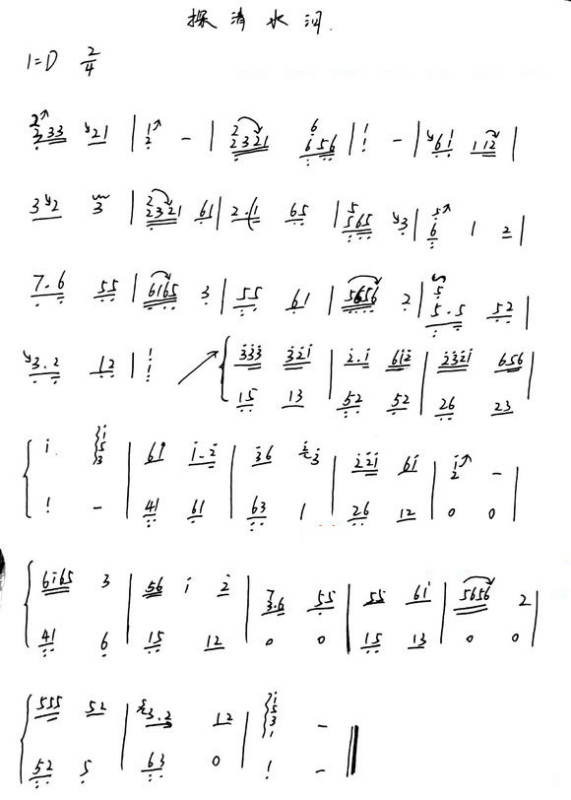 探清水河
1=D 2/4
2 2 333 21 | 1 2 - | 2 2321 6 656 | 1 1 - | 61 112 |
3 2 3 | 2 2321 61 | 2.(1 65 | 5 565 3 | 5 6 1 2 |
7.6 55 | 6165 3 | 55 61 | 5656 2 | 5 5.5 52 |
3.2 12 | 1 1 333 321 | 2.1 612 | 2321 656 |
15 13 | 52 52 | 26 23 |
1 1 5 3 | 61 1-2 | 36 3 | 221 61 | 1 2 - |
1 - | 41 61 | 63 1 | 26 12 | 0 0 |
6165 3 | 56 1 2 | 7 3.6 55 | 55 61 | 5656 2 |
41 6 | 15 12 | 0 0 | 15 13 | 0 0 |
555 52 | 3.2 12 | 1 5 3 1 -
52 5 | 63 0 | 1 -